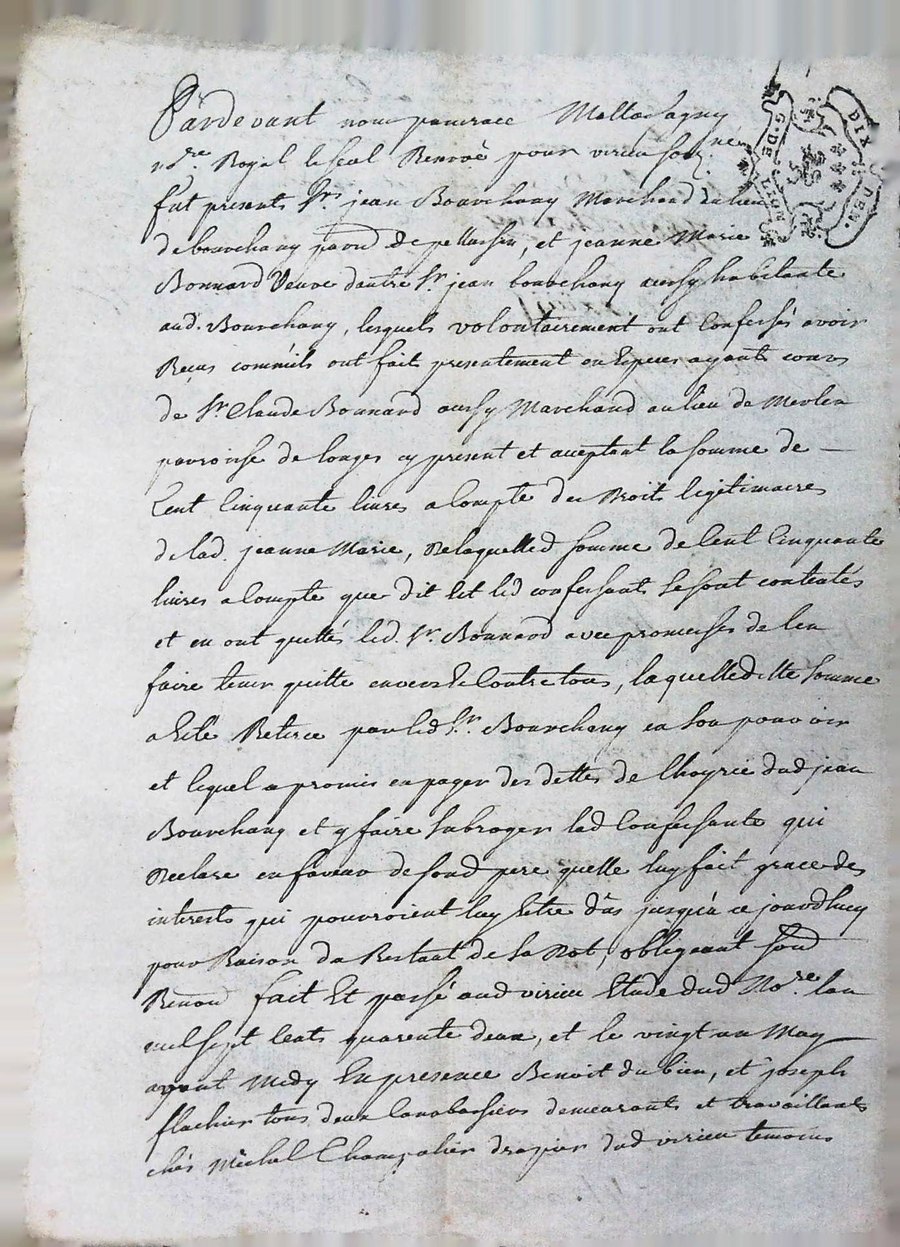 Pardevant nous pancrace Mallassagny
no.re Royal le seul Reservé pour virieu sous.né
fut presents Sr. jean Bourchany Marchand du lieu
de bourchany parr.d de pellussin, et jeanne Marie
Bonnard Veuve d'autre Sr jean bourchany aussy habitante
aud. Bourchany, lesquels volontairement ont Confessés avoir
Reçus comm'ils ont fait presentement en Especes ayants cours
de Sr Claude Bonnard aussy Marchand au lieu de Merlin
parroisse de longes cy present et aceptant la somme de
Cent Cinquante livres a Compte des Droits legitimaires
de lad. jeanne Marie, De laquelled somme de Cent Cinquante
livres a Compte que dit Est lesd confessants se sont contentés
et en ont quittés led. Sr. Bonnard avec promesses de l'en
faire tenir quitte envers Et Contre tous, laquelleditte somme
a Esté Retirée par led Sr. Bourchany en son pouvoir
et lequel a promis en payer des dettes de l'hoyrie dud jean
Bourchany et y faire subroger lad Confessante qui
Declare en faveur de sond pere quelle luy fait grace des
interets qui pourroient luy Estre dus jusqu'a ce jourd'huy
pour Raison du Restant de sa Dot, obligeant sond
Renond fait Et passé aud virieu Etude dud No.re l'an
mil sept Cents quarente deux, et le vingt un May
avant Midy En presence Benoit dubien, et joseph
flachier tous deux Canabassiers demeurants et travaillants
chés Michel Champalier drapier dud virieu temoins
G. DE LYON
DIX DEN.